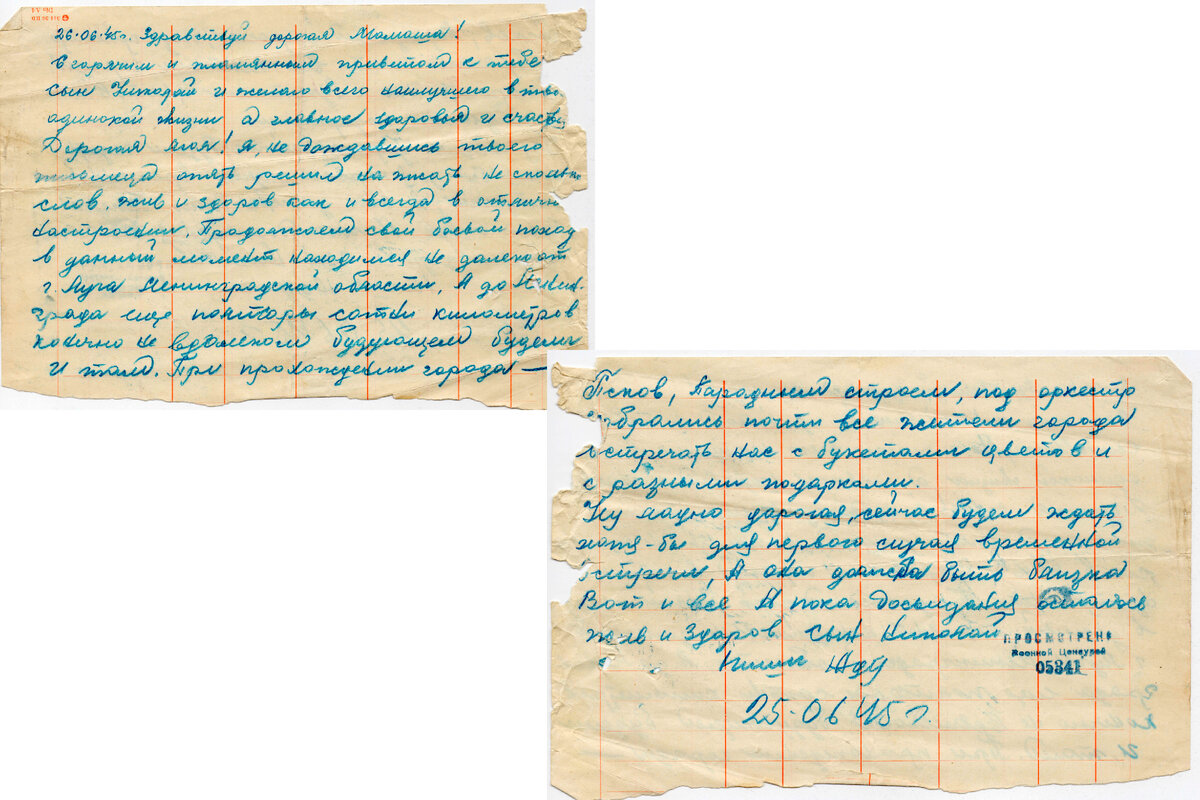 26.06.45г. Здравствуй дорогая Мамаша!
С горячим и пламянным приветом к тебе
сын Николай и желаю всего наилучшего в тво
одинокой жизни а главное здоровья и счасть
Дорогая моя! Я, не дождавшись твоего
письмеца опять решил на писать не скольк
слов. жив и здоров как и всегда в отличн
настроении. Продолжаем свой боевой поход
в данный момент находимся не далеко от
г. Луга Ленинградской области, А до Ленин
града еще полторы сотни километров
конечно не вдалеком будующем будем
и там. При прохождении города —
Псков, Парадным строем, под оркестр
собрались почти все жители города
встречать нас с букетами цветов и
с разными подарками.
Ну ладно дорогая, сейчас будем ждать
хотя-бы для первого случая временной
встречи, А она должна быть близка
Вот и все А пока досвидания остаюсь
жив и здоров сын Николай
Пиши Жду
25.06 45 г.
ПРОСМОТРЕНО
Военной Цензурой
05341